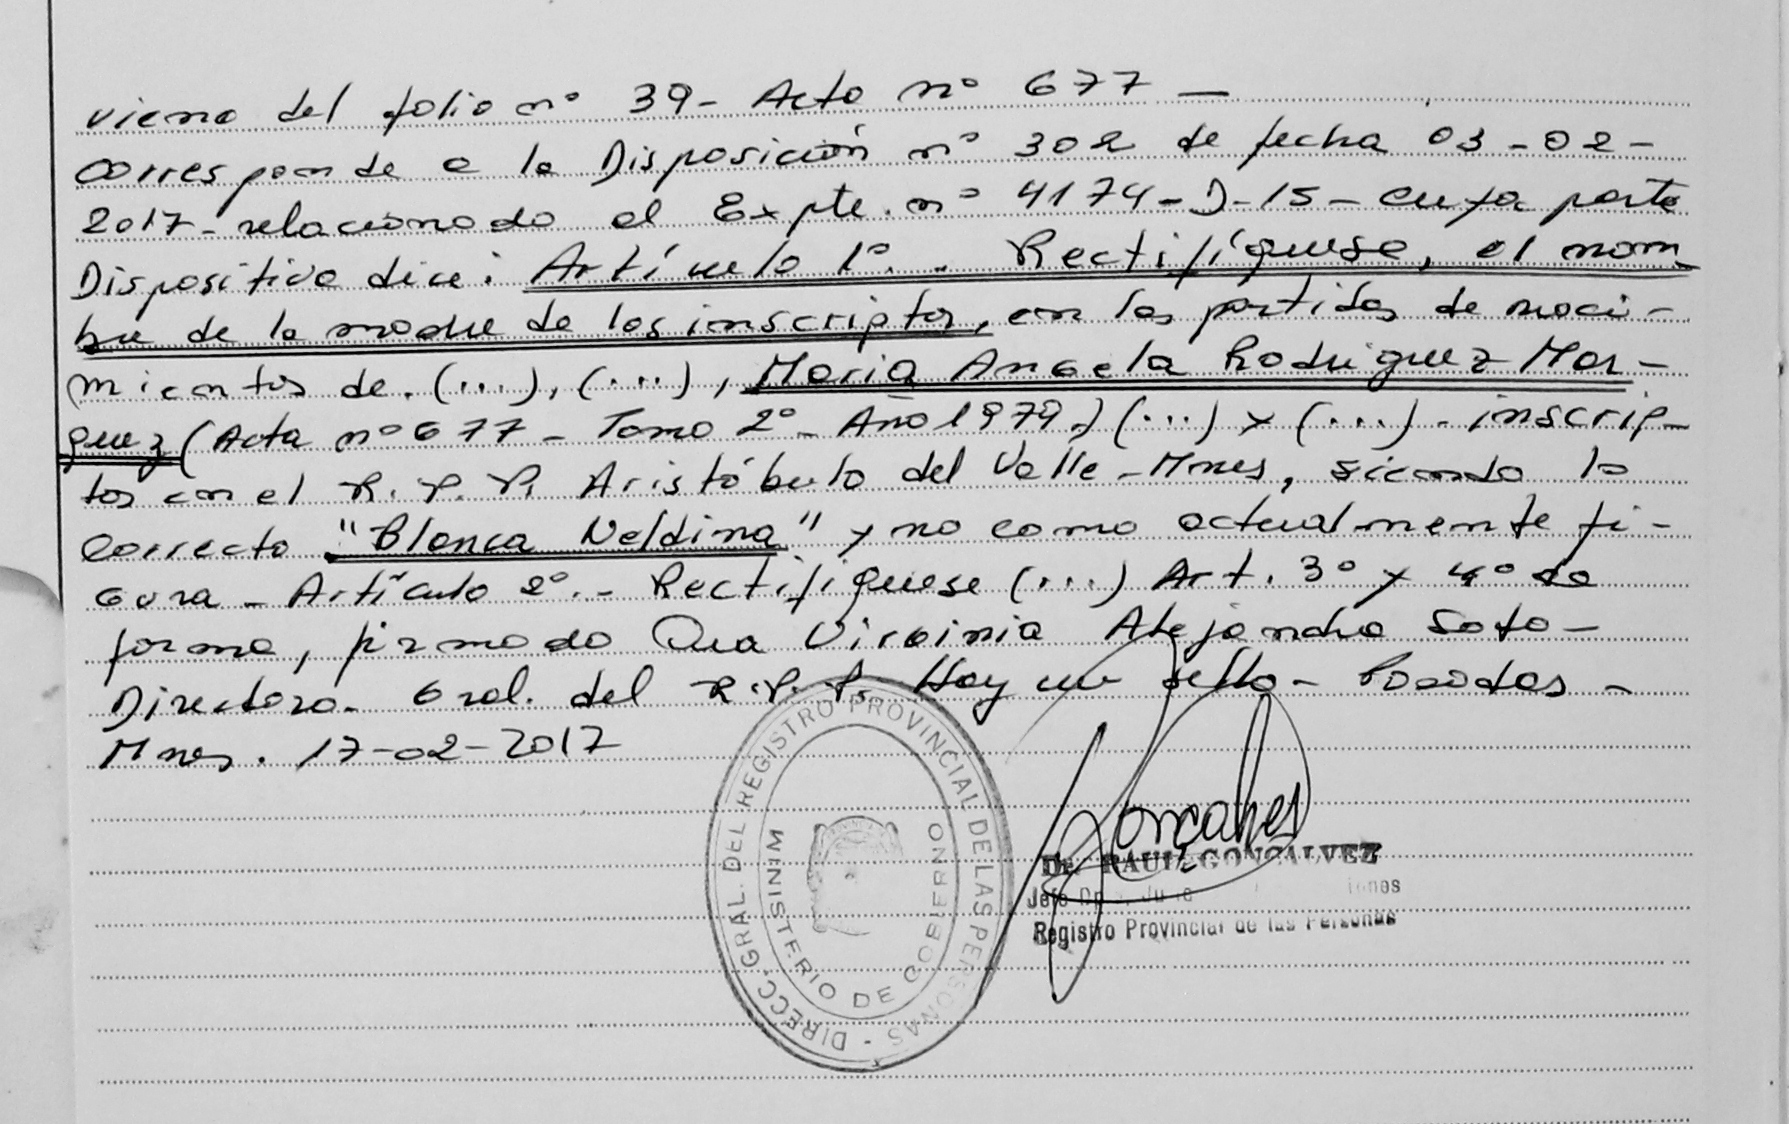 viene del folio nº 39- Acta nº 677 —
corresponde a la Disposición nº 302 de fecha 03-02-
2017- relacionado al Expte. nº 4174-D-15- cuya parte
Dispositiva dice: Artículo 1º.- Rectifíquese, el nom
bre de la madre de los inscriptos, en las partidas de naci-
mientos de. (...), (...), María Angela Rodriguez Mar-
quez (Acta nº 677- Tomo 2º- Año 1979.) (...) y (...). inscrip-
tos en el R.P.P. Aristóbulo del Valle- Mnes, siendo lo
correcto "Blanca Neldina" y no como actualmente fi-
gura- Artículo 2º.- Rectifíquese (...) Art. 3º y 4º de
forma, firmado Dra Virginia Alejandra Soto-
Directora- Gral. del R.P.P. Hay un sello- Posadas-
Mnes. 17-02-2017
DIRECC. GRAL. DEL REGISTRO PROVINCIAL DE LAS PERSONAS -
MINISTERIO DE GOBIERNO
Dr. RAUL GONCALVEZ
Jefe
Registro Provincial de las Personas